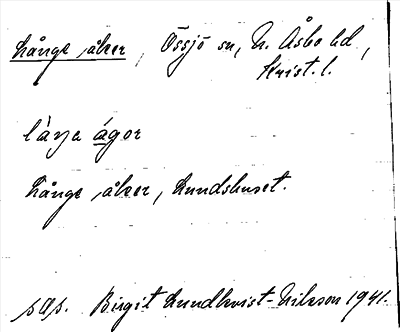 Långe åker, Össjö sn, N. Åsbo hd,
Krist. l.
lånje ágor
Långe åker, Lundshuset.
pas. Birgit Lundkvist-Nilsson 1941.